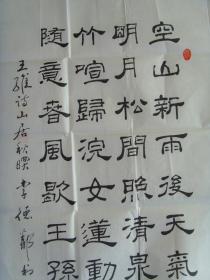 空山新雨後天氣
明月松間照清泉
竹喧歸浣女蓮動
隨意春風歇王孫
王維詩山居秋暝 李德